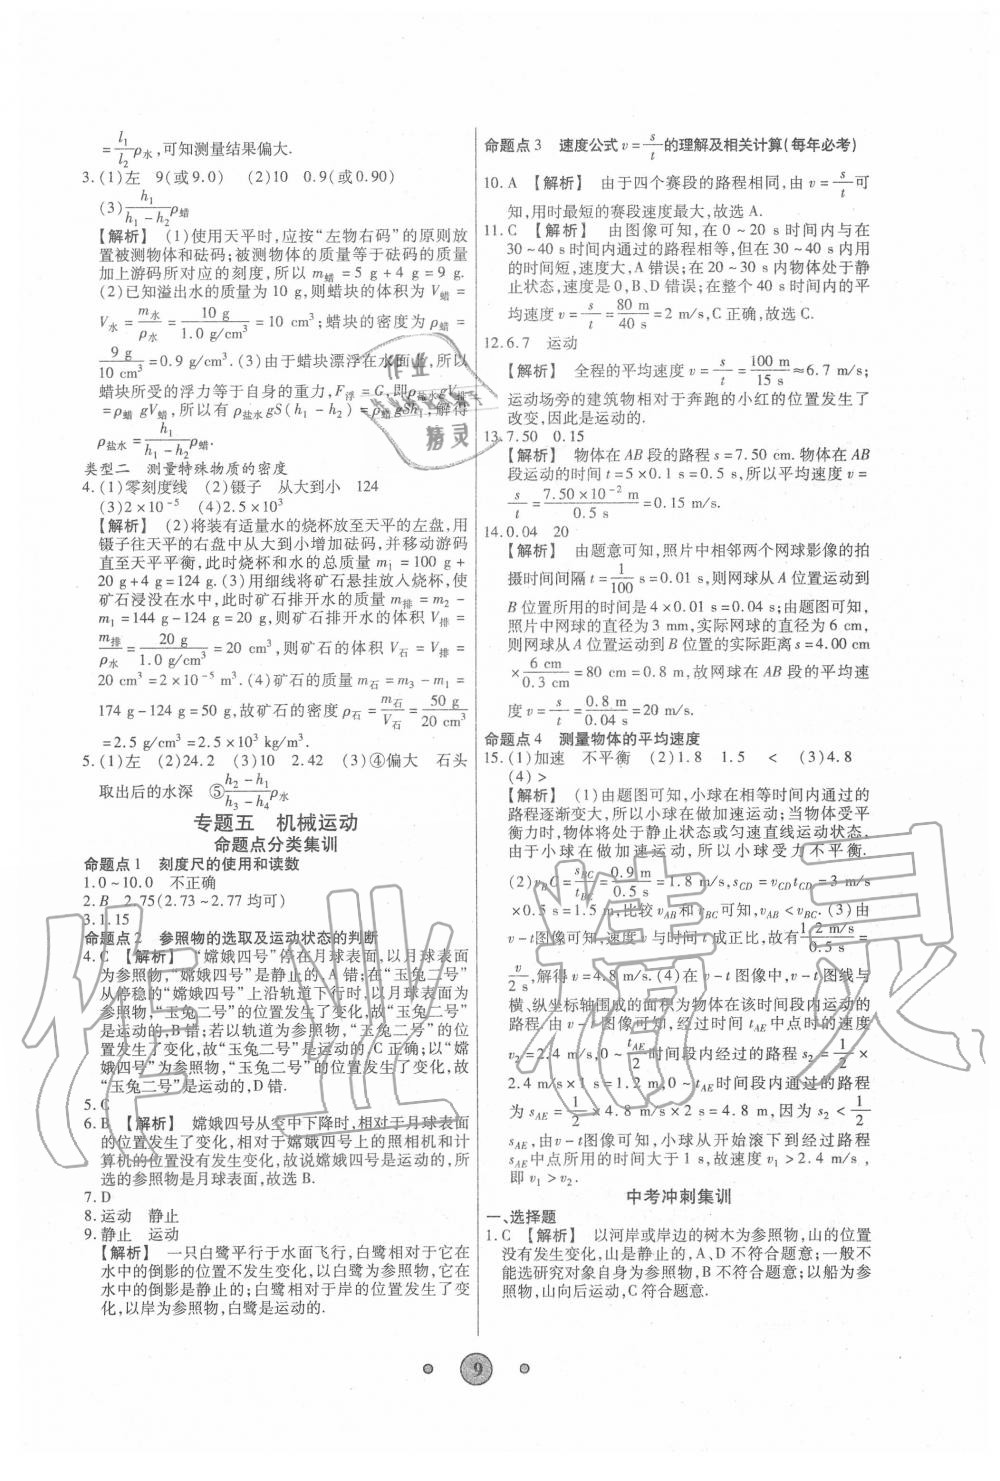 = l₁/l₂ ρ水,可知测量结果偏大.
3.(1)左　9(或9.0)　(2)10　0.9(或0.90)
(3) h₁/(h₁-h₂) ρ蜡
【解析】　(1)使用天平时,应按“左物右码”的原则放
置被测物体和砝码;被测物体的质量等于砝码的质量
加上游码所对应的刻度,所以 m蜡=5 g+4 g=9 g.
(2)已知溢出水的质量为10 g,则蜡块的体积为 V蜡=
V水= m水/ρ水 = 10 g/1.0 g/cm³ =10 cm³;蜡块的密度为 ρ蜡=
9 g/10 cm³ =0.9 g/cm³.(3)由于蜡块漂浮在水面上,所以
蜡块所受的浮力等于自身的重力,F浮=G,即ρ盐水gV排
=ρ蜡 gV蜡,所以有 ρ盐水gS(h₁-h₂)=ρ蜡gSh₁,解得
ρ盐水= h₁/(h₁-h₂) ρ蜡.
类型二　测量特殊物质的密度
4.(1)零刻度线　(2)镊子　从大到小　124
(3)2×10⁻⁵　(4)2.5×10³
【解析】　(2)将装有适量水的烧杯放至天平的左盘,用
镊子往天平的右盘中从大到小增加砝码,并移动游码
直至天平平衡,此时烧杯和水的总质量 m₁=100 g+
20 g+4 g=124 g.(3)用细线将矿石悬挂放入烧杯,使
矿石浸没在水中,此时矿石排开水的质量 m排=m₂-
m₁=144 g-124 g=20 g,则矿石排开水的体积 V排=
m排/ρ水 = 20 g/1.0 g/cm³ =20 cm³,矿石的体积 V石=V排=
20 cm³=2×10⁻⁵ m³.(4)矿石的质量 m石=m₃-m₁=
174 g-124 g=50 g,故矿石的密度 ρ石= m石/V石 = 50 g/20 cm³
=2.5 g/cm³=2.5×10³kg/m³.
5.(1)左　(2)24.2　(3)10　2.42　(3)④偏大　石头
取出后的水深　⑤ (h₂-h₁)/(h₃-h₄) ρ水
专题五　机械运动
命题点分类集训
命题点1　刻度尺的使用和读数
1.0~10.0　不正确
2.B　2.75(2.73~2.77 均可)
3.1.15
命题点2　参照物的选取及运动状态的判断
4.C　【解析】　“嫦娥四号”停在月球表面,以月球表面
为参照物,“嫦娥四号”是静止的,A 错;在“玉兔二号”
从停稳的“嫦娥四号”上沿轨道下行时,以月球表面为
参照物,“玉兔二号”的位置发生了变化,故“玉兔二号”
是运动的,B错;若以轨道为参照物,“玉兔二号”的位
置发生了变化,故“玉兔二号”是运动的,C正确;以“嫦
娥四号”为参照物,“玉兔二号”的位置发生了变化,故
“玉兔二号”是运动的,D错.
5.C
6.B　【解析】　嫦娥四号从空中下降时,相对于月球表面
的位置发生了变化,相对于嫦娥四号上的照相机和计
算机的位置没有发生变化,故说嫦娥四号是运动的,所
选的参照物是月球表面,故选B.
7.D
8.运动　静止
9.静止　运动
【解析】　一只白鹭平行于水面飞行,以白鹭相对于它在
水中的倒影的位置不发生改变,以它为参照物,白鹭在
水中的倒影是静止的;白鹭相对于岸的位置发生了变
化,以岸为参照物,白鹭是运动的.
命题点3　速度公式 v= s/t 的理解及相关计算(每年必考)
10.A　【解析】　由于四个赛段的路程相同,由 v= s/t 可
知,用时最短的赛段速度最大,故选 A.
11.C　【解析】　由图像可知,在 0~20 s 时间内与在
30~40 s 时间内通过的路程相等,但在 30~40 s 内用
的时间短,速度大,A 错误;在 20~30 s内物体处于静
止状态,速度是0,B、D错误;在整个40 s时间内的平
均速度 v= s/t = 80 m/40 s =2 m/s,C 正确,故选 C.
12.6.7　运动
【解析】　全程的平均速度 v= s/t = 100 m/15 s ≈6.7 m/s;
运动场旁的建筑物相对于奔跑的小红的位置发生了
改变,因此是运动的.
13.7.50　0.15
【解析】　物体在 AB 段的路程 s=7.50 cm. 物体在 AB
段运动的时间 t=5×0.1 s=0.5 s,所以平均速度 v=
s/t = 7.50×10⁻² m/0.5 s =0.15 m/s.
14.0.04　20
【解析】　由题意可知,照片中相邻两个网球影像的拍
摄时间间隔 t= 1/100 s=0.01 s,则网球从 A 位置运动到
B 位置所用的时间是 4×0.01 s=0.04 s;由题图可知,
照片中网球的直径为 3 mm,实际网球的直径为 6 cm,
则网球从A位置运动到B位置的实际距离s=4.00 cm
× 6 cm/0.3 cm =80 cm=0.8 m,故网球在 AB 段的平均速
度 v= s/t = 0.8 m/0.04 s =20 m/s.
命题点4　测量物体的平均速度
15.(1)加速　不平衡　(2)1.8　1.5　<　(3)4.8
(4)>
【解析】　(1)由题图可知,小球在相等时间内通过的
路程逐渐变大,所以小球在做加速运动;当物体受平
衡力时,物体将处于静止状态或匀速直线运动状态,
由于小球在做加速运动,所以小球受力不平衡.
(2)vBC= sBC/tBC = 0.9 m/0.5 s =1.8 m/s,sCD=vCDtCD=3 m/s
×0.5 s=1.5 m,比较 vAB和 vBC可知,vAB<vBC.(3)由
v-t图像可知,速度 v 与时间 t 成正比,故有 1.2 m/s/0.5 s =
v/2 s,解得 v=4.8 m/s.(4)在 v-t 图像中,v-t 图线与
横、纵坐标轴围成的面积为物体在该时间段内运动的
路程,由 v-t 图像可知,小球经过 tAE中点时的速度
v₂=2.4 m/s,0~ tAE/2 时间段内经过的路程 s₂= 1/2 ×
2.4 m/s×1 s=1.2 m,0~tAE时间段内通过的路程
为 sAE= 1/2 ×4.8 m/s×2 s=4.8 m,因为 s₂< 1/2
sAE,由v-t图像可知,小球从开始滚下到经过路程
中点所用的时间大于 1 s,故速度 v₁>2.4 m/s,
即 v₁>v₂.
中考冲刺集训
一、选择题
1.C　【解析】　以河岸或岸边的树木为参照物,山的位置
没有发生变化,山是静止的,A、D 不符合题意;一般不
能选研究对象自身为参照物,B 不符合题意;以船为参
照物,山向后运动,C 符合题意.
9
作业
精灵
作业精灵